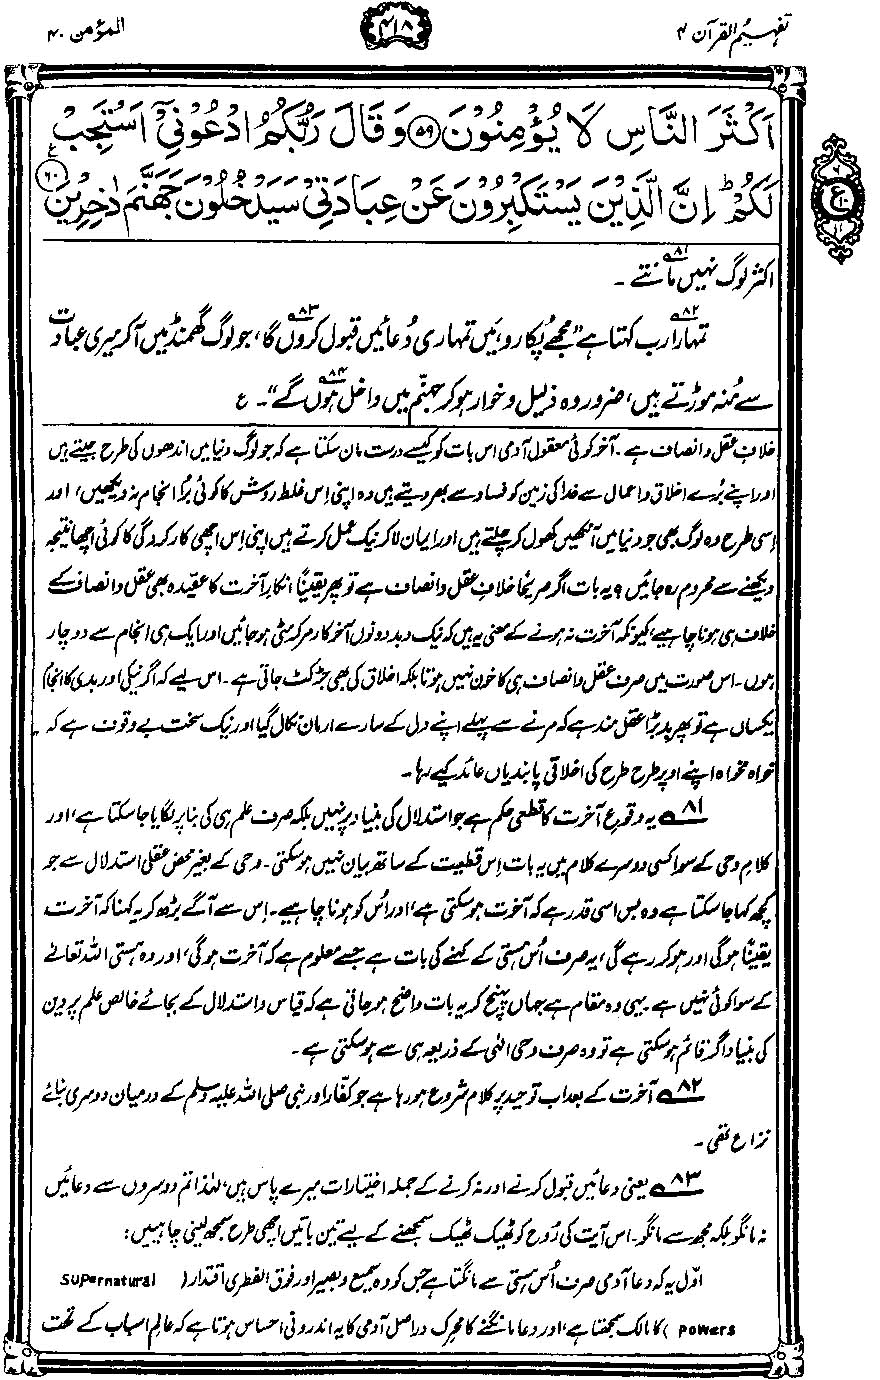 تفہیم القرآن ۴
۴۱۸
المؤمن ۴۰
اَكْثَرَ النَّاسِ لَا يُؤْمِنُوْنَ ۵۹ وَقَالَ رَبُّكُمُ ادْعُوْنِيْٓ اَسْتَجِبْ
لَكُمْ ؕ اِنَّ الَّذِيْنَ يَسْتَكْبِرُوْنَ عَنْ عِبَادَتِيْ سَيَدْخُلُوْنَ جَهَنَّمَ دٰخِرِيْنَ ۶۰
ع
اکثر لوگ نہیں مانتے ۸۱۔
تمہارا ۸۲ رب کہتا ہے ”مجھے پکارو، میں تمہاری دُعائیں قبول کروں گا ۸۳، جو لوگ گھمنڈ میں آکر میری عبادت
سے مُنہ موڑتے ہیں، ضرور وہ ذلیل و خوار ہو کر جہنّم میں داخل ہوں گے ۸۴“۔ ع
خلافِ عقل و انصاف ہے۔ آخر کوئی معقول آدمی اس بات کو کیسے درست مان سکتا ہے کہ جو لوگ دنیا میں اندھوں کی طرح جیتے ہیں
اور اپنے بُرے اخلاق و اعمال سے خدا کی زمین کو فساد سے بھر دیتے ہیں وہ اپنی اِس غلط روش کا کوئی بُرا انجام نہ دیکھیں، اور
اِسی طرح وہ لوگ بھی جو دنیا میں آنکھیں کھول کر چلتے ہیں اور ایمان لا کر نیک عمل کرتے ہیں اپنی اِس اچھی کارکردگی کا کوئی اچھا نتیجہ
دیکھنے سے محروم رہ جائیں؟ یہ بات اگر صریحًا خلافِ عقل و انصاف ہے تو پھر یقینًا انکارِ آخرت کا عقیدہ بھی عقل و انصاف کے
خلاف ہی ہونا چاہیے، کیونکہ آخرت نہ ہونے کے معنی یہ ہیں کہ نیک و بد دونوں آخر کار مر کر مٹی ہو جائیں اور ایک ہی انجام سے دوچار
ہوں۔ اس صورت میں صرف عقل و انصاف ہی کا خون نہیں ہوتا بلکہ اخلاق کی بھی جڑ کٹ جاتی ہے۔ اس لیے کہ اگر نیکی اور بدی کا انجام
یکساں ہے تو پھر بد بڑا عقل مند ہے کہ مرنے سے پہلے اپنے دل کے سارے ارمان نکال گیا اور نیک سخت بے وقوف ہے کہ
خواہ مخواہ اپنے اوپر طرح طرح کی اخلاقی پابندیاں عائد کیے رہا۔
۸۱ یہ وقوعِ آخرت کا قطعی حکم ہے جو استدلال کی بنیاد پر نہیں بلکہ صرف علم ہی کی بنا پر لگایا جا سکتا ہے، اور
کلامِ وحی کے سوا کسی دوسرے کلام میں یہ بات اِس قطعیت کے ساتھ بیان نہیں ہو سکتی۔ وحی کے بغیر محض عقلی استدلال سے جو
کچھ کہا جا سکتا ہے وہ بس اسی قدر ہے کہ آخرت ہو سکتی ہے، اور اُس کو ہونا چاہیے۔ اِس سے آگے بڑھ کر یہ کہنا کہ آخرت
یقینًا ہوگی اور ہو کر رہے گی، یہ صرف اُس ہستی کے کہنے کی بات ہے جسے معلوم ہے کہ آخرت ہوگی، اور وہ ہستی اللہ تعالےٰ
کے سوا کوئی نہیں ہے۔ یہی وہ مقام ہے جہاں پہنچ کر یہ بات واضح ہو جاتی ہے کہ قیاس و استدلال کے بجائے خالص علم پر دین
کی بنیاد اگر قائم ہو سکتی ہے تو وہ صرف وحی الٰہی کے ذریعہ ہی سے ہو سکتی ہے۔
۸۲ آخرت کے بعد اب توحید پر کلام شروع ہو رہا ہے جو کفّار اور نبی صلی اللہ علیہ وسلم کے درمیان دوسری بنائے
نزاع تھی۔
۸۳ یعنی دعائیں قبول کرنے اور نہ کرنے کے جملہ اختیارات میرے پاس ہیں، لہٰذا تم دوسروں سے دعائیں
نہ مانگو بلکہ مجھ سے مانگو۔ اس آیت کی رُوح کو ٹھیک ٹھیک سمجھنے کے لیے تین باتیں اچھی طرح سمجھ لینی چاہییں:
اوّل یہ کہ دعا آدمی صرف اُس ہستی سے مانگتا ہے جس کو وہ سمیع و بصیر اور فوق الفطری اقتدار (Supernatural
Powers) کا مالک سمجھتا ہے، اور دعا مانگنے کا محرک دراصل آدمی کا یہ اندرونی احساس ہوتا ہے کہ عالمِ اسباب کے تحت